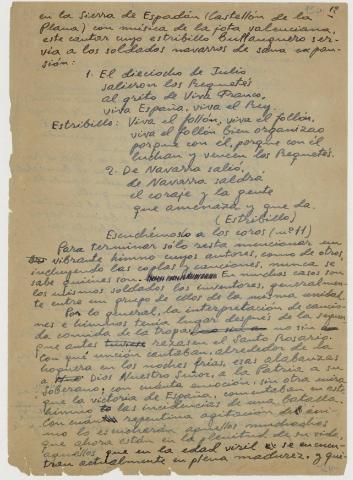 en la Sierra de Espadán (Castellón de la
Plana) con música de la jota valenciana,
este cantar cuyo estribillo bullanguero ser-
vía a los soldados navarros de sana expan-
sión:
1. El dieciocho de Julio
salieron los Requetés
al grito de Viva Franco,
viva España, viva el Rey.
Estribillo: Viva el follón, viva el follón,
viva el follón bien organizao
porque con el, porque con el
luchan y vencen los Requetés.
2. De Navarra salió,
de Navarra saldrá
el coraje y la gente
que amenaza y que da.
(Estribillo)
Escuchémoslo a los coros (nº 11)
Para terminar sólo resta mencionar un
vibrante himno cuyos autores, como de otros,
incluyendo las coplas y canciones, nunca se
sabe quiénes son. En muchos casos son
los mismos soldados los inventores, generalmen-
te entre un grupo de ellos de la misma unidad.
Por lo general, la interpretación de cancio-
nes e himnos tenía lugar después de la segun-
da comida de la tropa, no sin
antes rezasen el Santo Rosario.
Con qué unción cantaban, alrededor de la
hoguera en las noches frías, esas alabanzas
a Dios Nuestro Señor, a la Patria a su
Soberano; con cuánta emoción, sin otra mira
que la victoria de España, comentaban en este
himno las incidencias de una batalla.
Con cuánta repentina agitación de áni-
mo lo escucharán aquellos muchachos
que ahora están en la plenitud de su vida,
aquellos que en la edad viril se encuen-
tran actualmente en plena madurez, y qui-